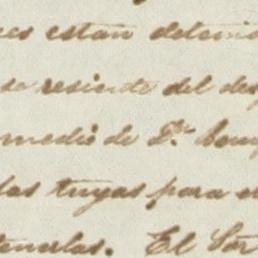 es estan deteni
se resiente del des
medio de Dn. Com
las tuyas para e
tenerlas. El Sor